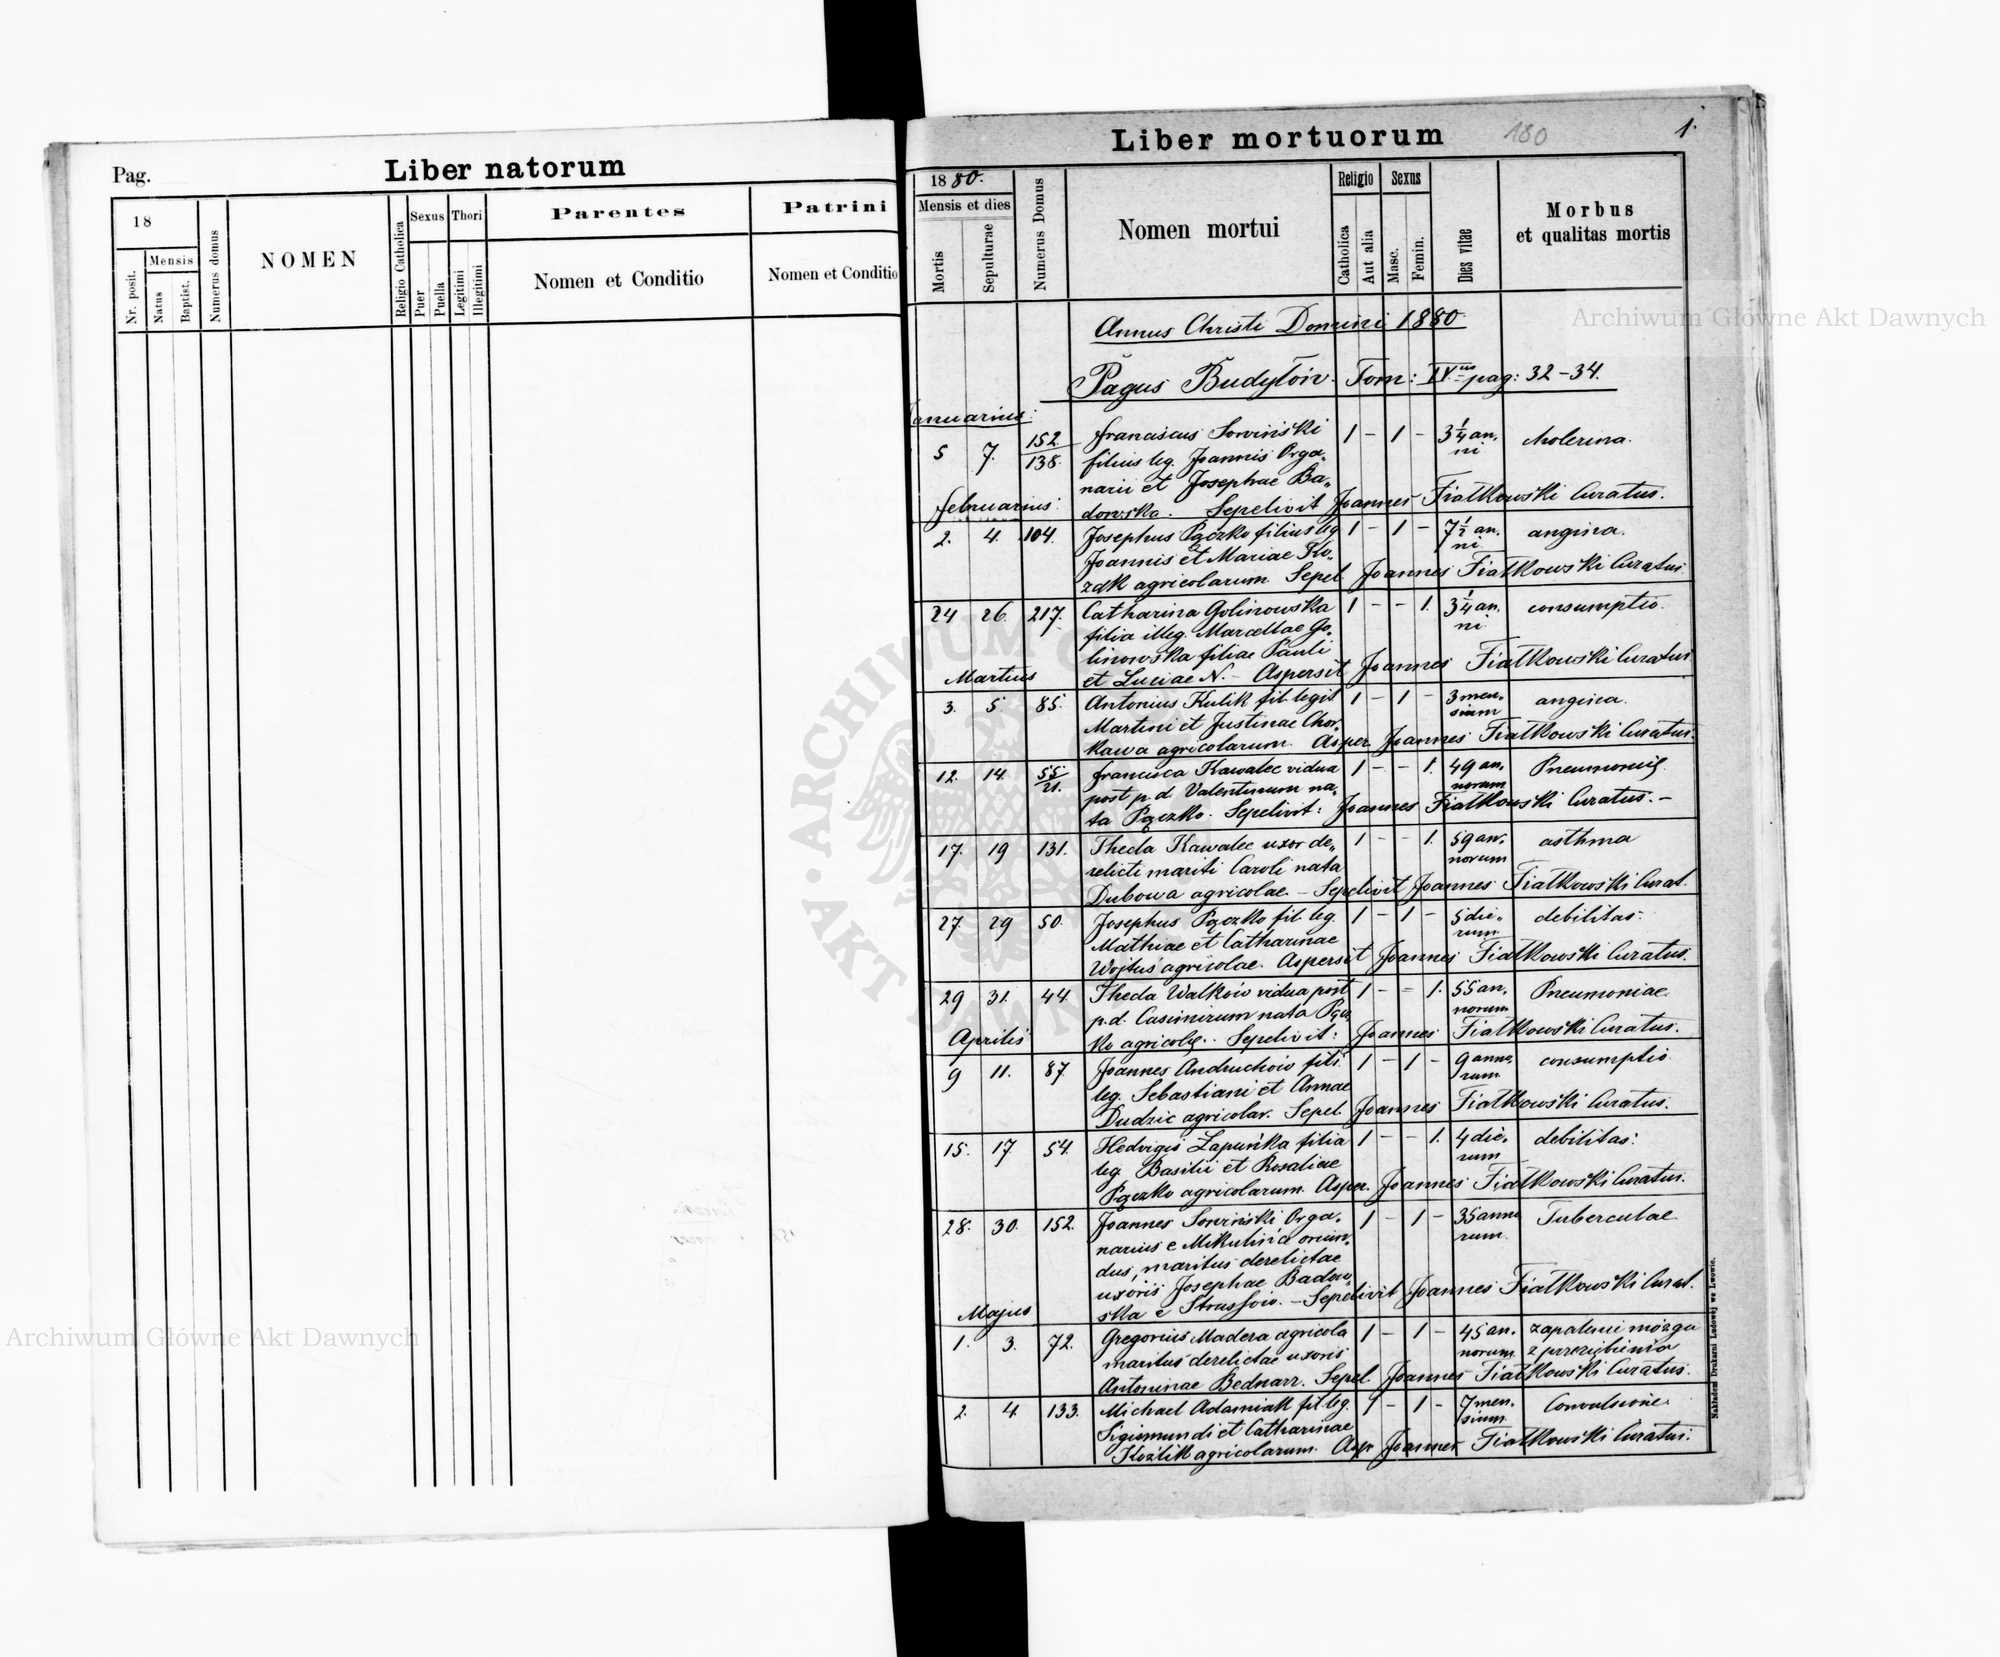 Pag.
Liber natorum
18
Nr. posit.
Mensis
Natus
Baptist.
Numerus domus
NOMEN
Religio Catholica
Sexus
Puer
Puella
Thori
Legitimi
Illegitimi
Parentes
Nomen et Conditio
Patrini
Nomen et Conditio
Liber mortuorum
180
1.
1880.
Mensis et dies
Mortis
Sepulturae
Numerus Domus
Nomen mortui
Religio
Catholica
Aut alia
Sexus
Masc.
Femin.
Dies vitae
Morbus
et qualitas mortis
Annus Christi Domini 1880
Pagus Budyłów. Tom: IV.us pag: 32-34.
Januarius:
5 7. 152/138. Franciscus Sowiński 1 - 1 - 3 1/4 an, cholerina.
filius leg. Joannis Orga, ni
narii et Josephae Ba,
Februarius: dowska. Sepelivit Joannes Fiałkowski Curatus.
2. 4. 104. Josephus Pączko filius leg 1 - 1 - 7 1/2 an, angina.
Joannis et Mariae Ko, ni
zak agricolarum. Sepel. Joannes Fiałkowski Curatus.
24 26. 217. Catharina Golinowska 1 - - 1. 3 1/4 an, consumptio.
filia illeg. Marcellae Go, ni
linowska filiae Pauli
Martius et Luciae N. - Aspersit Joannes Fiałkowski Curatus
3. 5. 85. Antonius Kulik fil. legit 1 - 1 - 3 men, angina.
Martini et Justinae Chor, sium
kawa agricolarum. Asper. Joannes Fiałkowski Curatus.
12. 14. 55/21. Francisca Kawalec vidua 1 - - 1. 49 an, Pneumonię
post p.d. Valentinum na, norum
ta Pączko. Sepelivit: Joannes Fiałkowski Curatus. -
17. 19 131. Thecla Kawalec uxor de, 1 - - 1. 59 an, asthma
relicti mariti Caroli nata norum
Dubowa agricolae. - Sepelivit Joannes Fiałkowski Curat.
27. 29 50. Josephus Pączko fil. leg. 1 - 1 - 5 die, debilitas.
Mathiae et Catharinae rum.
Wojtuś agricolae. Aspersit Joannes Fiałkowski Curatus.
29 31. 44. Thecla Walków vidua post 1 - - 1. 55 an, Pneumoniae
p.d. Casimirum nata Pącz, norum
Aprilis ko agricolę. Sepelivit: Joannes Fiałkowski Curatus.
9 11. 87 Joannes Andruchów fili. 1 - 1 - 9 anno, consumptio
leg. Sebastiani et Annae rum.
Dudzic agricolar. Sepel. Joannes Fiałkowski Curatus.
15. 17. 54. Hedvigis Łapuńka filia 1 - - 1. 4 die, debilitas.
leg. Basilii et Rosaliae rum
Pączko agricolarum. Asper. Joannes Fiałkowski Curatus.
28. 30. 152. Joannes Sowiński Orga, 1 - 1 - 35 anno Tuberculae
narius e Mikulińa oriun, rum.
dus, maritus derelictae
uxoris Josephae Badow,
Majus ska e Strussow. - Sepelivit Joannes Fiałkowski Curat.
1. 3. 72. Gregorius Madera agricola 1 - 1 - 45 an, zapaleni mózgu
maritus derelictae uxoris norum z przeziębienia
Antoninae Bednarz. Sepel. Joannes Fiałkowski Curatus.
2. 4. 133. Michael Adamiak fil. leg. 1 - 1 - 7 men, Convulsione
Sigismundi et Catharinae sium
Koźlik agricolarum. Asp. Joannes Fiałkowski Curatus.
Nakładem Drukarni Ludowej we Lwowie.
Archiwum Główne Akt Dawnych
Archiwum Główne Akt Dawnych